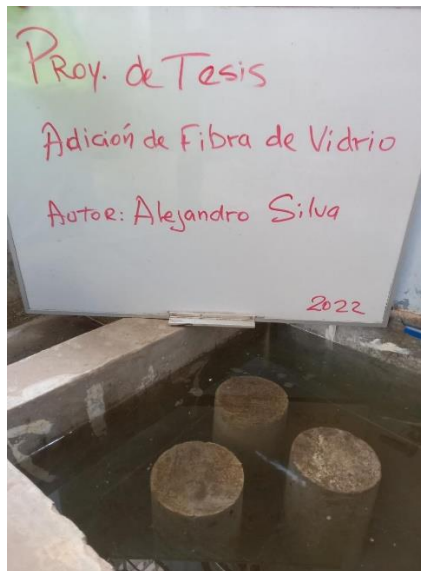 Proy. de Tesis
Adición de Fibra de Vidrio
Autor: Alejandro Silva
2022